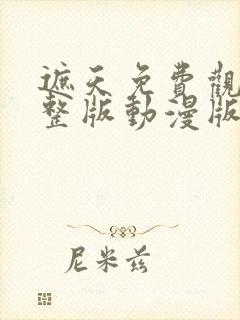 遮天免費觀
整版動漫版
尼米兹